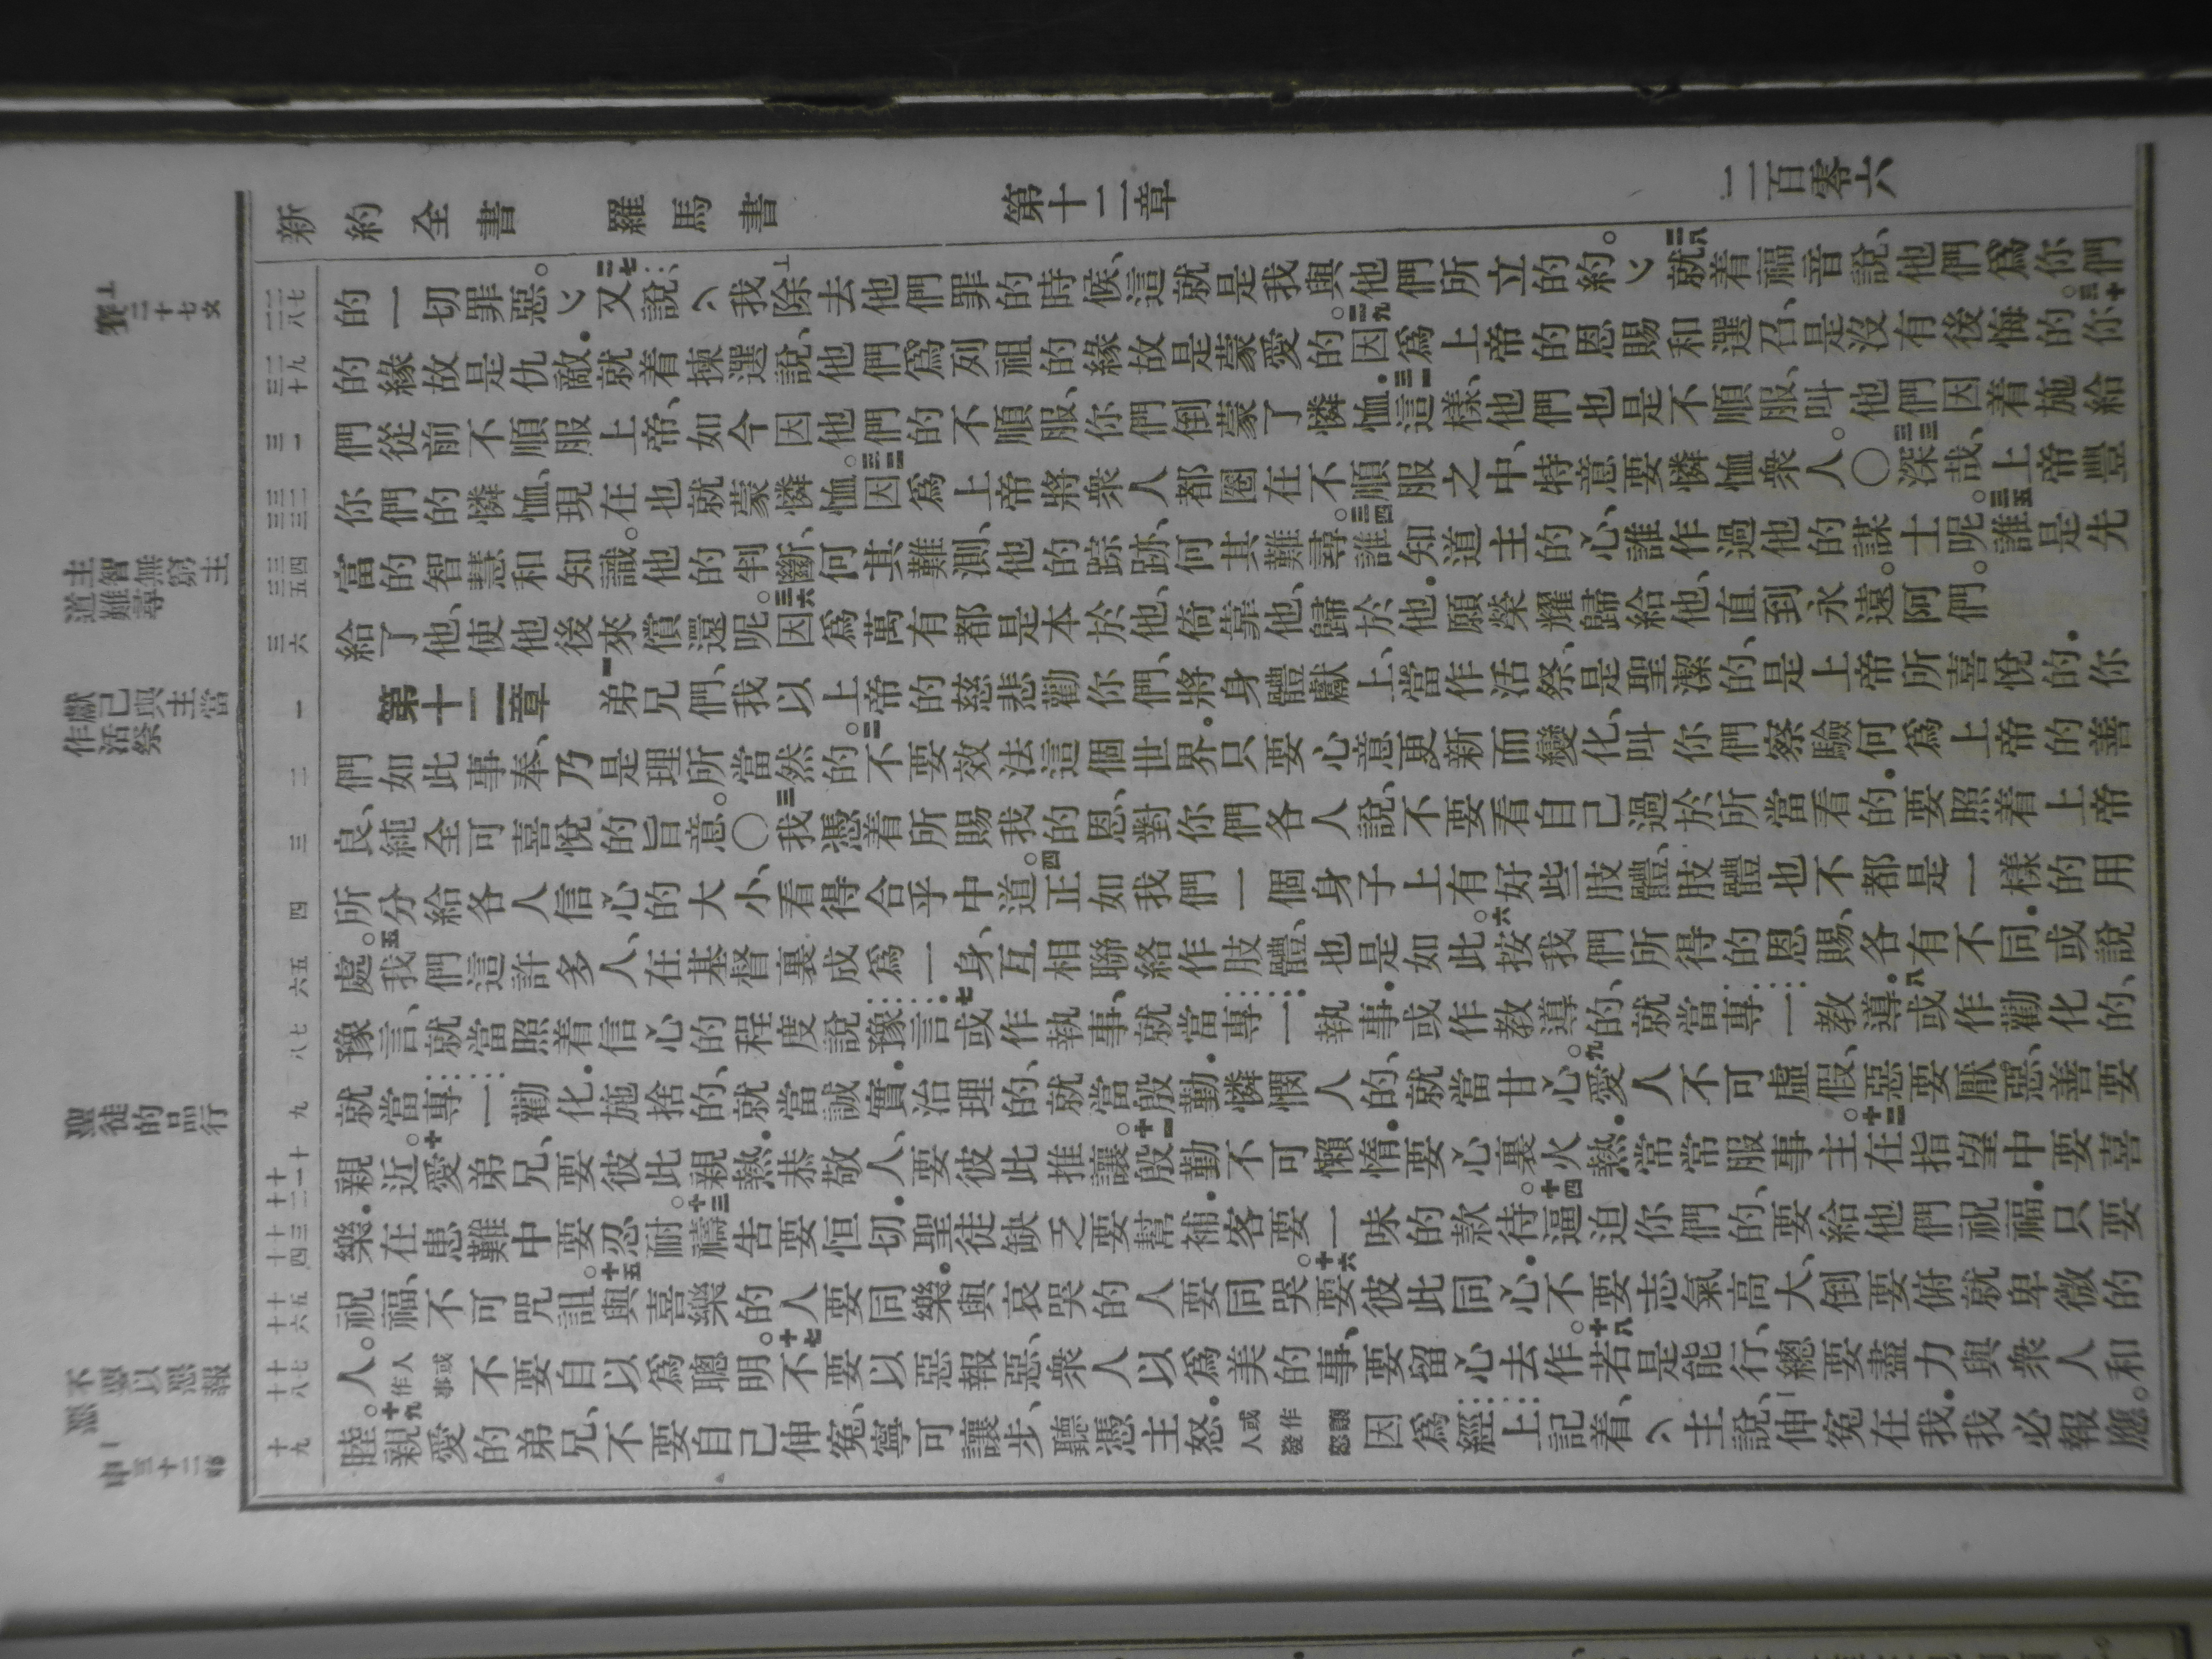 新約全書 羅馬書 第十二章 二百零六
的一切罪惡。﹀又說、︿我上除去他們罪的時候、這就是我與他們所立的約。﹀二八就着福音說、他們爲你們
的緣故是仇敵.就着揀選說、他們爲列祖的緣故是蒙愛的。二九因爲上帝的恩賜和選召、是沒有後悔的。三十你
們從前不順服上帝、如今因他們的不順服、你們倒蒙了憐恤.三一這樣、他們也是不順服、叫他們因着施給
你們的憐恤、現在也就蒙憐恤。三二因爲上帝將衆人都圈在不順服之中、特意要憐恤衆人。〇三三深哉、上帝豐
富的智慧和知識。他的判斷、何其難測、他的踪跡、何其難尋。三四誰知道主的心、誰作過他的謀士呢。三五誰是先
給了他、使他後來償還呢。三六因爲萬有都是本於他、倚靠他、歸於他.願榮耀歸給他、直到永遠。阿們。
第十二章 一弟兄們、我以上帝的慈悲勸你們、將身體獻上、當作活祭、是聖潔的、是上帝所喜悅的.你
們如此事奉、乃是理所當然的。二不要效法這個世界.只要心意更新而變化、叫你們察驗何爲上帝的善
良、純全可喜悅的旨意。〇三我憑着所賜我的恩、對你們各人說、不要看自己過於所當看的.要照着上帝
所分給各人信心的大小、看得合乎中道。四正如我們一個身子上有好些肢體、肢體也不都是一樣的用
處。五我們這許多人、在基督裏成爲一身、互相聯絡作肢體、也是如此。六按我們所得的恩賜、各有不同.或說
豫言、就當照着信心的程度說豫言.七或作執事、就當專一執事.或作教導的、就當專一教導.八或作勸化的、
就當專一勸化.施捨的、就當誠實.治理的、就當殷勤.憐憫人的、就當甘心。九愛人不可虛假、惡要厭惡、善要
親近。十愛弟兄、要彼此親熱.恭敬人、要彼此推讓。十一殷勤不可懶惰.要心裏火熱.常常服事主。十二在指望中要喜
樂.在患難中要忍耐。十三禱告要恒切.聖徒缺乏要幫補.客要一味的款待。十四逼迫你們的、要給他們祝福.只要
祝福、不可咒詛。十五與喜樂的人要同樂.與哀哭的人要同哭。十六要彼此同心.不要志氣高大、倒要俯就卑微的
人。人或作事不要自以爲聰明。十七不要以惡報惡、衆人以爲美的事、要留心去作。十八若是能行、總要盡力與衆人和
睦。十九親愛的弟兄、不要自己伸冤、寧可讓步、聽憑主怒.因爲經上記着、︿主說、伸冤在我.我必報應。
主智無窮
主道難尋
獻己與主當作活祭
聖徒的品行
不要以惡報惡